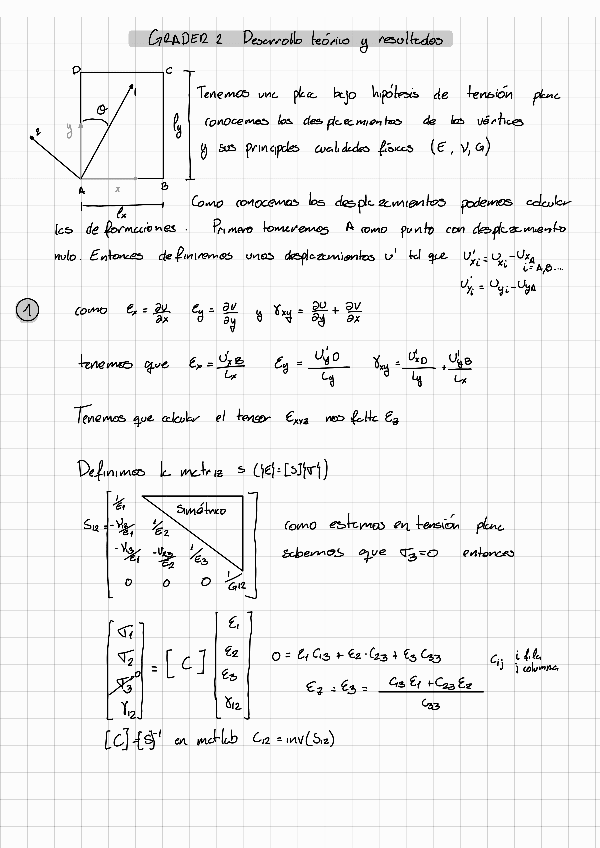 GRADER 2 Desarrollo teórico y resultados
D C
θ 1
y ly
2
A x B
lx
Tenemos una placa bajo hipótesis de tensión plana
conocemos los desplazamientos de los vértices
y sus principales cualidades físicas (E, ν, G)
Como conocemos los desplazamientos podemos calcular
las deformaciones. Primero tomaremos A como punto con desplazamiento
nulo. Entonces definiremos unos desplazamientos u' tal que U'xi = Uxi - UxA
i = A, B...
U'yi = Uyi - UyA
1 como εx = ∂U/∂x εy = ∂V/∂y y γxy = ∂U/∂y + ∂V/∂x
tenemos que εx = U'xB/Lx εy = U'yD/Ly γxy = U'xD/Ly + U'yB/Lx
Tenemos que calcular el tensor εxyz nos falta εz
Definimos la matriz S ({ε} = [S]{σ})
1/E1 Simétrico
S12 = -ν12/E1 1/E2
-ν13/E1 -ν23/E2 1/E3
0 0 0 1/G12
como estamos en tensión plana
sabemos que σ3 = 0 entonces
σ1 ε1
σ2 = [C] ε2
σ3 0 ε3
γ12 γ12
0 = ε1 C13 + ε2 · C23 + ε3 C33 Cij i fila
j columna
εz = ε3 = C13 ε1 + C23 ε2 / C33
[C] = [S]⁻¹ en matlab C12 = inv(S12)